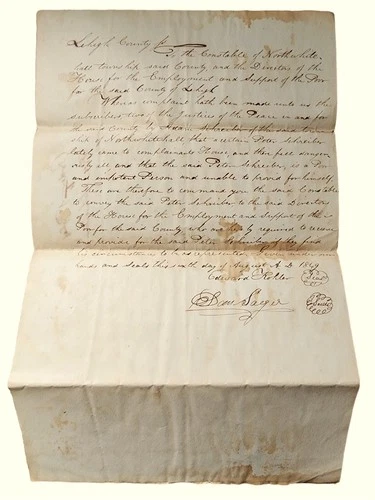 Lehigh County ss
To the Constable of Northwhite-
hall township said County and the Directors of the
House for the Employment and Support of the Poor
for the said County of Lehigh
Whereas complaint hath been made unto us the
subscribers two of the Justices of the Peace in and for
the said County by Adam Schreiber of the said town-
ship of Northwhitehall that a certain Peter Schreiber
lately came to complainants House, and then fell
all and that the said Peter Schreiber is a Poor
and impotent Person and unable to provide for himself
These are therefore to command you the said Constable
to convey the said Peter Schreiber to the said Directors
of the House for the Employment and Support of the
Poor for the said County who are hereby required to receive
and provide for the said Peter Schreiber if they find
his circumstance to be as represented. Given under our
hands and seals this sixth day of August A D 1849
Edward Kohler Seal
Seal